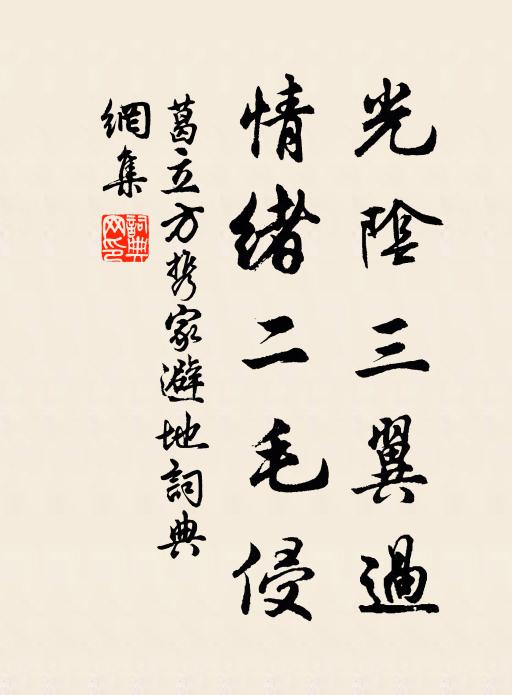 光陰三翼過
情緒二毛侵
葛立方携家避地詞典
網集
詞典網印